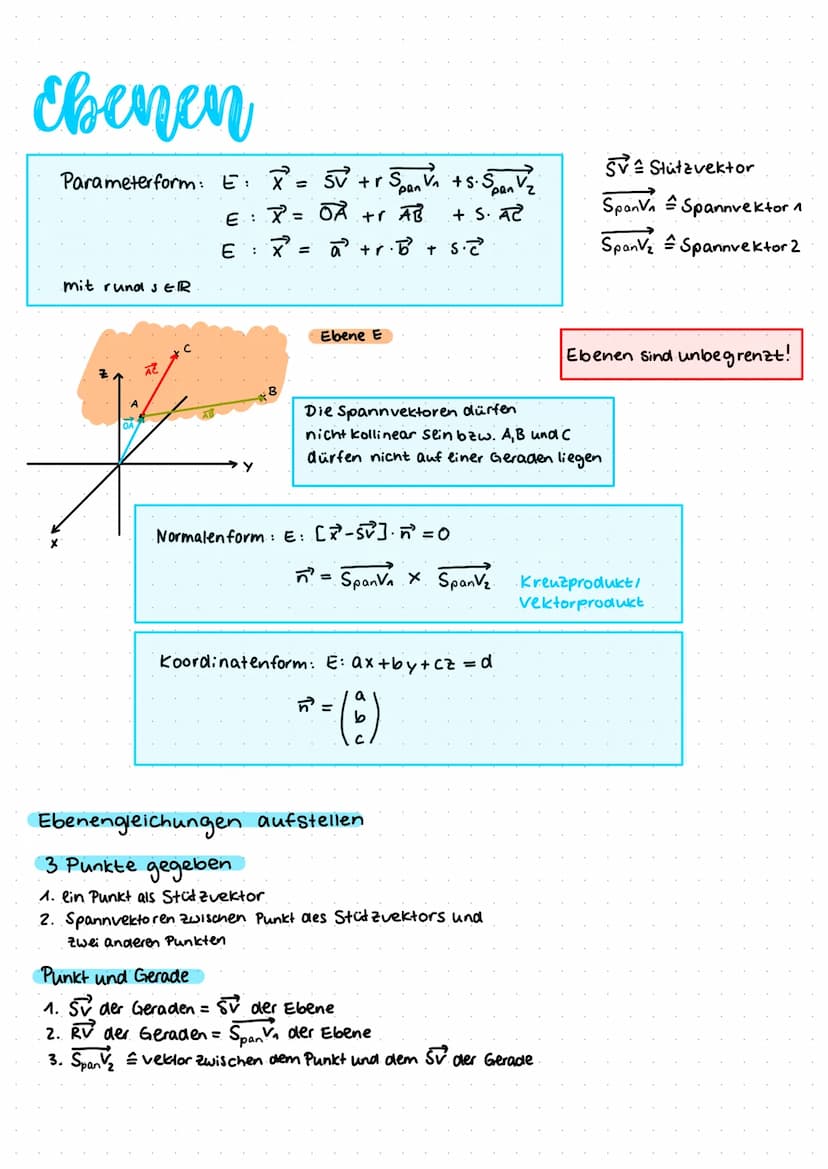 Ebenen
Parameterform: E: x⃗ = SV⃗ + r SpanV₁⃗ + s · SpanV₂⃗
E : x⃗ = OA⃗ + r AB⃗ + s · AC⃗
E : x⃗ = a⃗ + r · b⃗ + s · c⃗
mit r und s ∈ ℝ
SV⃗ ≙ Stützvektor
SpanV₁⃗ ≙ Spannvektor 1
SpanV₂⃗ ≙ Spannvektor 2
Ebene E
Ebenen sind unbegrenzt!
C
z
AC⃗
B
A
AB⃗
OA⃗
y
x
Die Spannvektoren dürfen
nicht kollinear sein bzw. A, B und C
dürfen nicht auf einer Geraden liegen
Normalenform : E: [x⃗ - SV⃗] · n⃗ = 0
n⃗ = SpanV₁⃗ × SpanV₂⃗
Kreuzprodukt/
Vektorprodukt
Koordinatenform: E: ax + by + cz = d
n⃗ = (a
b
c)
Ebenengleichungen aufstellen
3 Punkte gegeben
1. ein Punkt als Stützvektor
2. Spannvektoren zwischen Punkt des Stützvektors und
zwei anderen Punkten
Punkt und Gerade
1. SV⃗ der Geraden = SV⃗ der Ebene
2. RV⃗ der Geraden = SpanV₁⃗ der Ebene
3. SpanV₂⃗ ≙ Vektor zwischen dem Punkt und dem SV⃗ der Gerade